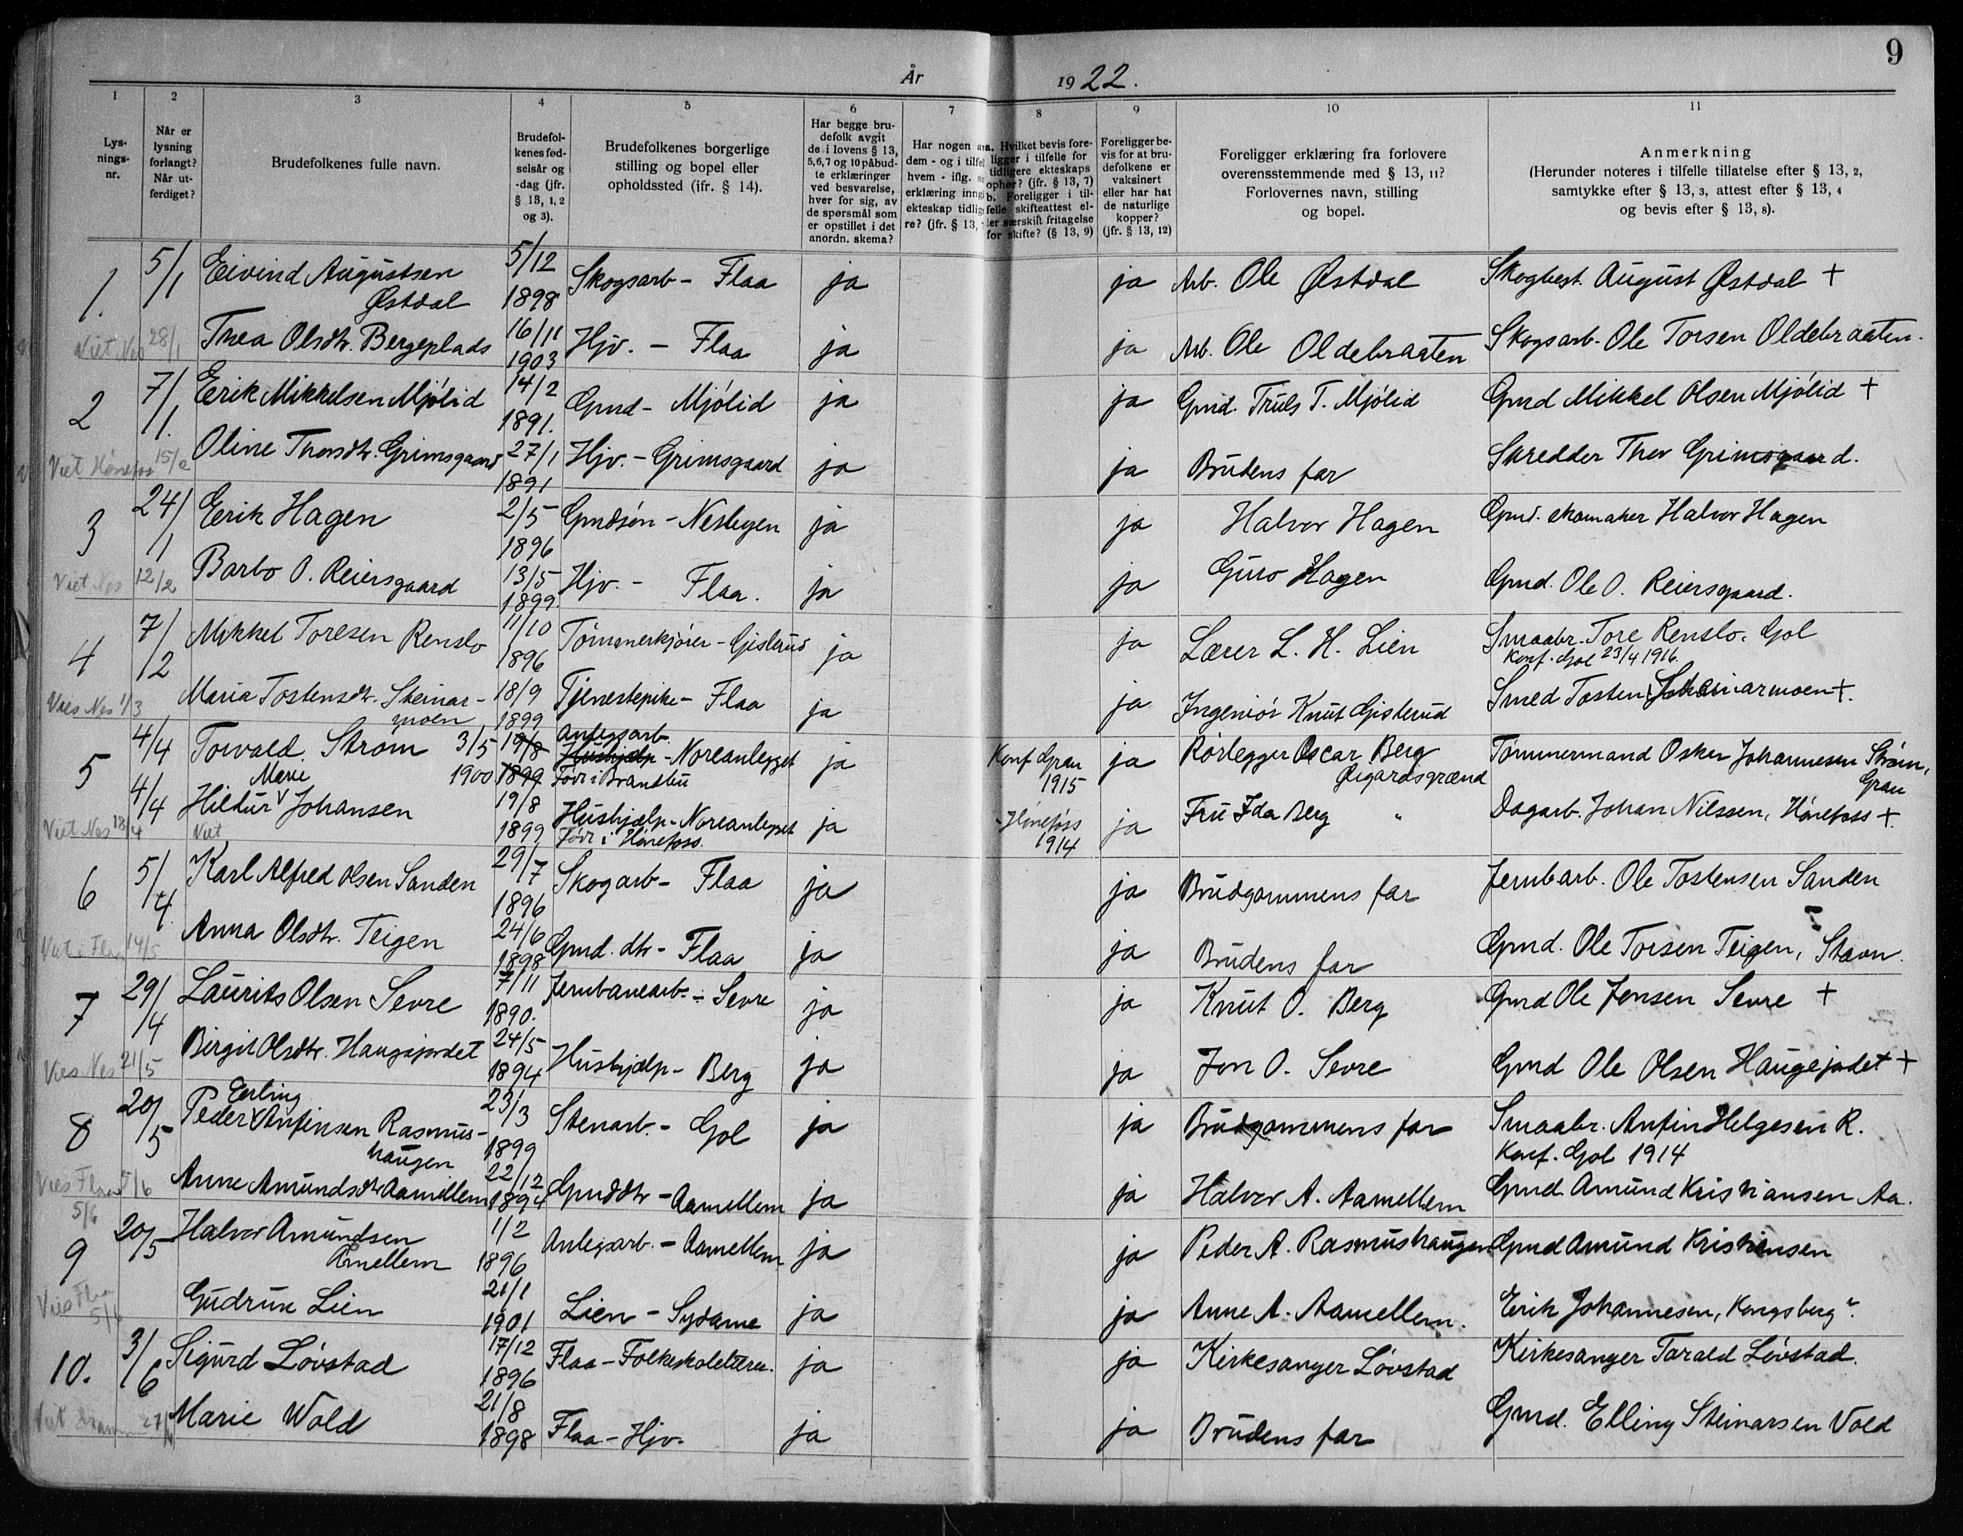 9
År 1922.
1 2 3 4 5 6 7 8 9 10 11
Lys-
nings-
nr.
Når er
lysning
forlangt?
Når ut-
ferdiget?
Brudefolkenes fulle navn.
Brudefol-
kenes fød-
selsår og
-dag (jfr.
§ 13, 1, 2
og 3).
Brudefolkenes borgerlige
stilling og bopel eller
opholdssted (ifr. § 14).
Har begge bru-
defolk avgit
de i lovens § 13,
5,6,7 og 10 påbud-
te erklæringer
ved besvarelse,
hver for sig, av
de spørsmål som
er opstillet i det
anordn. skema?
Har nogen a
dem - og i tilfel
hvem - iflg.
erklæring inng
ekteskap tidlig
re? (jfr. § 13,
a. Hvilket bevis fore-
ligger i tilfelle for
tidligere ekteskaps
ophør? (jfr. § 13, 7)
b. Foreligger i til-
felle skifteattest el-
ler særskilt fritagelse
for skifte? (§ 13, 9)
Foreligger be-
vis for at bru-
defolkene er
vaksinert
eller har hat
de naturlige
kopper?
(jfr. § 13, 12)
Foreligger erklæring fra forlovere
overensstemmende med § 13, 11?
Forlovernes navn, stilling
og bopel.
Anmerkning
(Herunder noteres i tilfelle tillatelse efter § 13, 2,
samtykke efter § 13, 3, attest efter § 13, 4
og bevis efter § 13, 8).
1. 5/1 Eivind Augustsen Østdal 5/12 1898 Skogsarb - Flaa ja ja Arb. Ole Østdal Skogbest. August Østdal +
Viet Nes 28/1 Thea Olsdtr. Bergeplads 16/11 1903 Hjv. - Flaa ja ja Arb. Ole Oldebraaten Skogsarb. Ole Torsen Oldebraaten.
2 7/1. Erik Mikkelsen Mjølid 14/2 1891. Gmd - Mjølid ja ja Gmd. Truls T. Mjølid Gmd Mikkel Olsen Mjølid +
Viet Hønefoss 15/2 Oline Thorsdtr. Grimsgaard 27/1 1891 Hjv. - Grimsgaard ja ja Brudens far Skredder Thor Grimsgaard.
3 24/1 Erik Hagen 2/5 1896 Gmdsøn - Nesbyen ja ja Halvor Hagen Gmd. skomaker Halvor Hagen
Viet Nes 12/2 Barbo O. Reiersgaard 13/5 1899 Hjv. - Flaa. ja ja Guro Hagen Gmd. Ole O. Reiersgaard.
4 7/2 Mikkel Toresen Renslo 11/10 1896 Tømmerkjører - Gislerud ja ja Lærer L. H. Lien Smaabr. Tore Renslo. Gol
Konf. Gol 23/4 1916.
Vies Nes 1/3 Maria Tostensdtr. Steinarmoen 18/9 1899 Tjenestepike - Flaa ja ja Ingeniør Knut Gislerud Smed Tosten Steinarmoen +.
5 4/4 Torvald Strøm 3/5 1900 19/8 1899 Anlegsarb. Hushjælp - Noreanlegget ja Konf Gran 1915 ja Rørlegger Oscar Berg Øigardsgrænd Tømmermand Oskar Johannesen Strøm, Gran
Født i Brandbu
4/4 Hildur Marie Johansen 19/8 1899 Hushjælp - Noreanlegget ja - Hønefoss 1914 ja Fru Ida Berg " Dagarb. Johan Nilssen, Hønefoss +.
Viet Nes 18/4 Viet Født i Hønefoss.
6 5/4 Karl Alfred Olsen Sanden 29/7 1896 Skogarb - Flaa ja ja Brudgommens far Jernbarb. Ole Tostensen Sanden
Viet i Flaa 14/5 Anna Olsdtr. Teigen 24/6 1898 Gmd. dtr - Flaa ja ja Brudens far Gmd. Ole Torsen Teigen, Stavn.
7 29/4 Laurits Olsen Sevre 7/11 1890. Jernbanearb. - Sevre ja ja Knut O. Berg Gmd Ole Jensen Sevre +
Vies Nes 21/5 Birgit Olsdtr. Haugejordet 24/5 1894 Hushjælp - Berg ja ja Jon O. Sevre Gmd Ole Olsen Haugejodet +
8 20/5 Peder Erling Anfinsen Rasmushaugen 23/3 1899 Stenarb. - Gol ja ja Brudgommens far Smaabr. Anfin Helgesen R.
Konf. Gol 1914
Vies Flaa 5/6 Anne Amundsdtr Aamellem 22/12 1894 Gmddtr - Aamellem ja ja Halvor A. Aamellem Gmd. Amund Kristiansen Aa.
5/6
9 20/5 Halvor Amundsen Amellem 1/2 1896 Anlegsarb. - Aamellem ja ja Peder A. Rasmushaugen Gmd Amund Kristiansen
Vies Flaa 5/6 Gudrun Lien 21/1 1901 Lien - Sydame ja ja Anne A. Aamellem. Erik Johannesen, Kongsberg.
10. 3/6 Sigurd Løvstad 17/12 1896 Flaa - Folkeskolelærer. ja ja Kirkesanger Løvstad Kirkesanger Tarald Løvstad.
Viet Dram 27/ Marie Wold 21/8 1898 Flaa - Hjv. ja ja Brudens far Gmd. Elling Steinarsen Vold